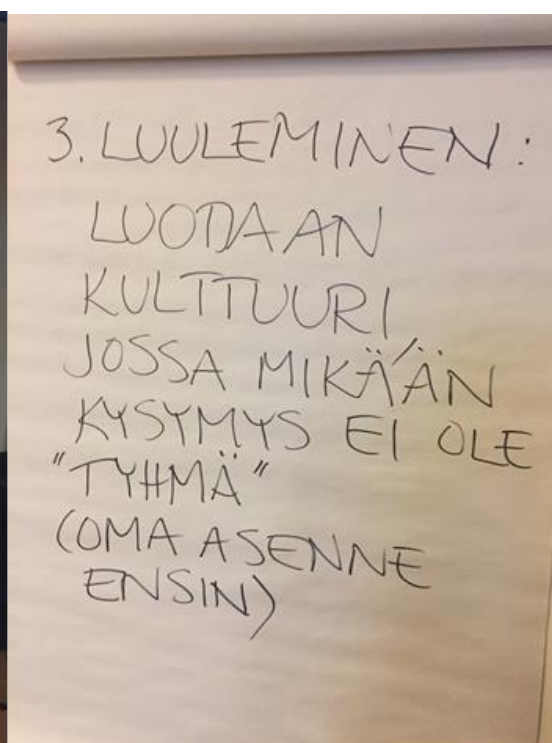 3. LUULEMINEN:
LUODAAN
KULTTUURI,
JOSSA MIKÄÄN
KYSYMYS EI OLE
"TYHMÄ"
(OMA ASENNE
ENSIN)